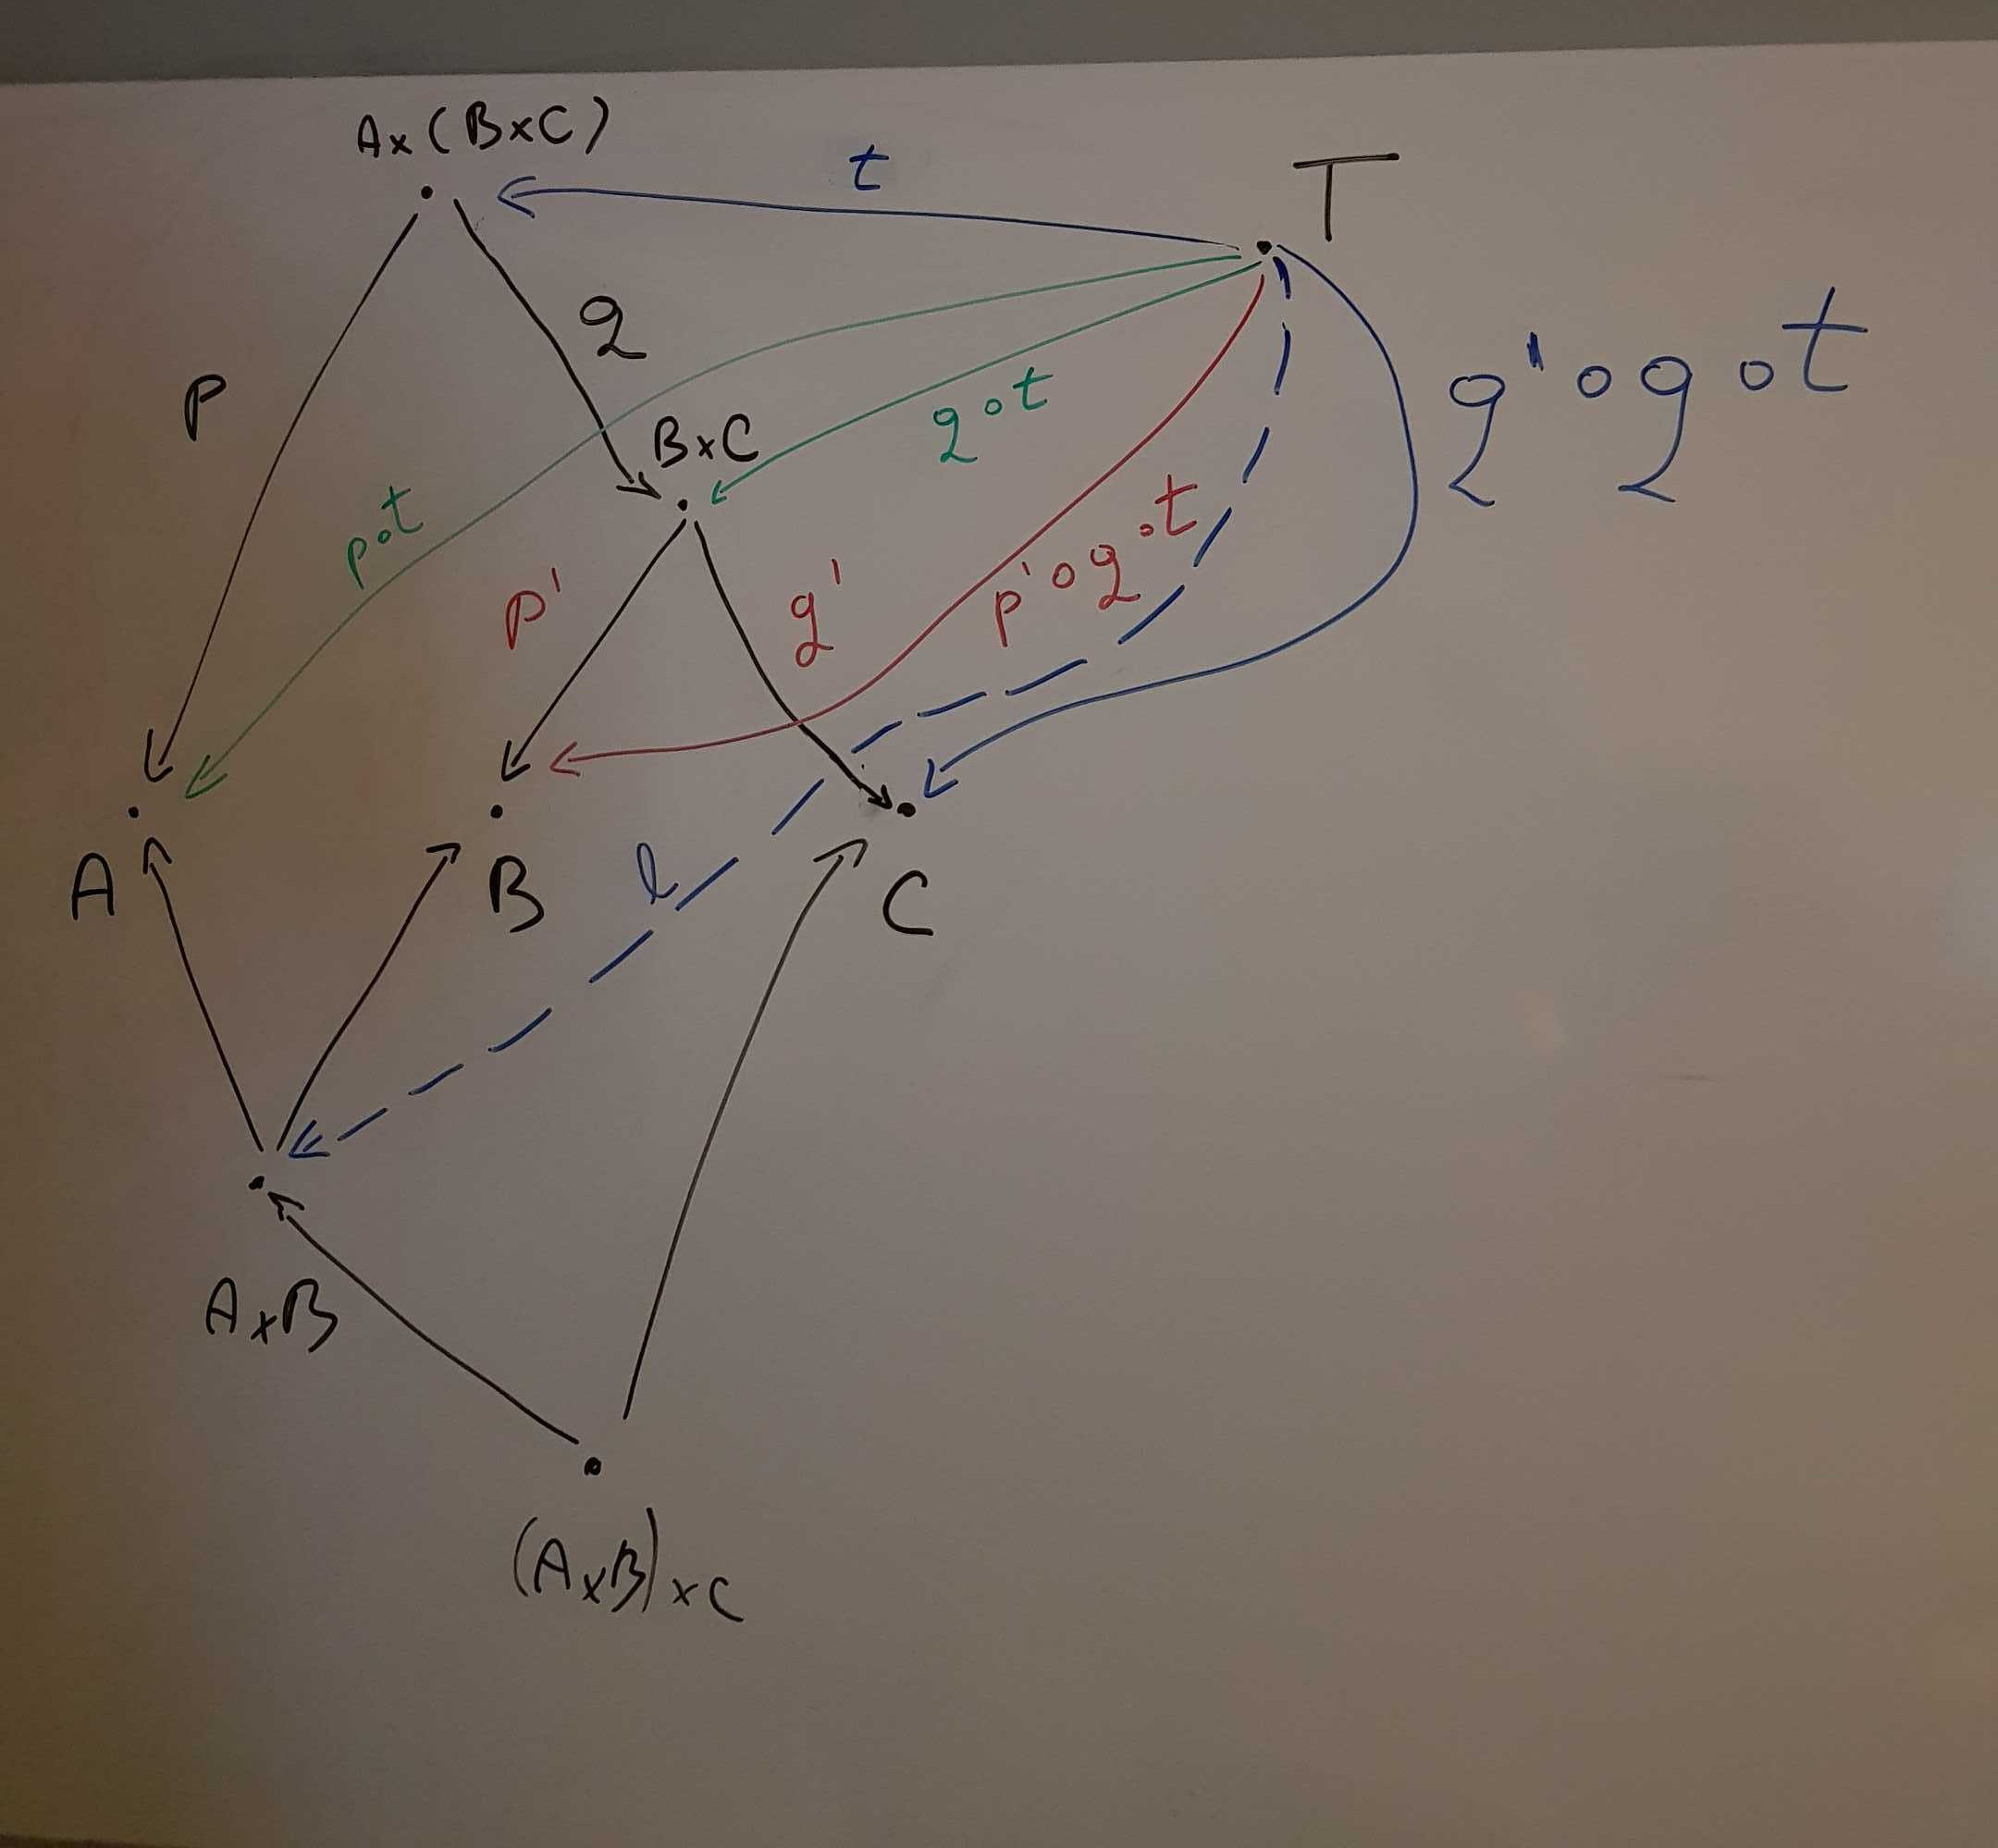 A×(B×C)
t
T
q
p
q'∘q∘t
B×C
q∘t
p∘t
p'
q'
p'∘q∘t
A
B
l
C
A×B
(A×B)×C